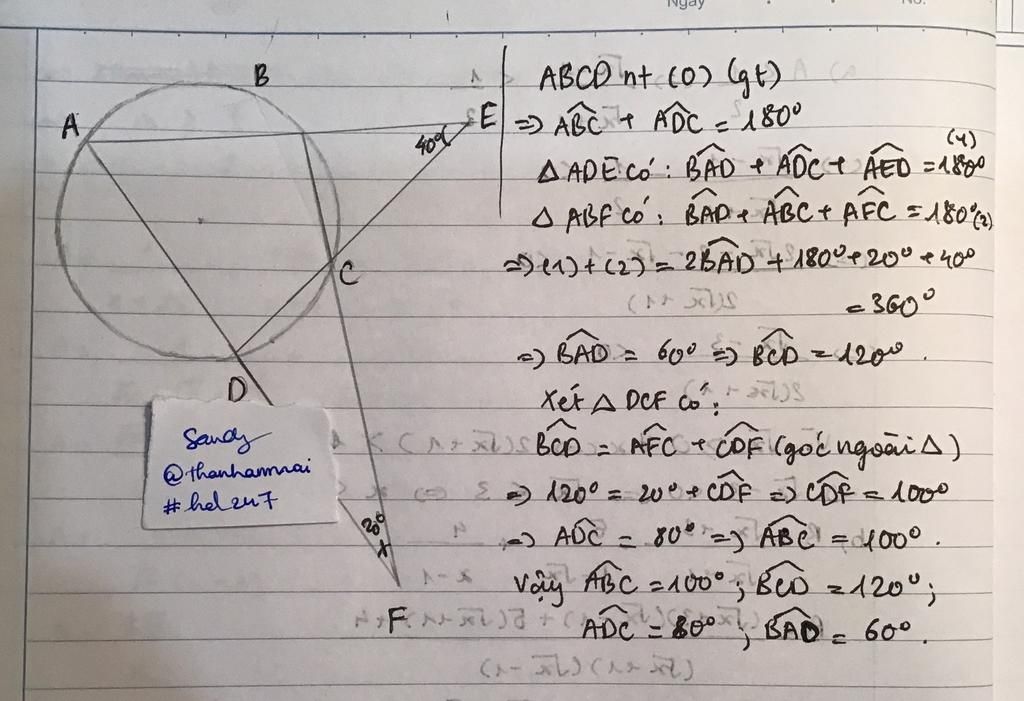 Ngày
No.
B
A
E
40°
C
D
20°
F
Sandy
@thanhamnai
#hd247
ABCD nt (O) (gt)
=> ABC + ADC = 180°
Δ ADE có: BAD + ADC + AED = 180° (1)
Δ ABF có: BAD + ABC + AFC = 180° (2)
=> (1) + (2) = 2BAD + 180° + 20° + 40°
= 360°
=> BAD = 60° => BCD = 120°.
Xét Δ DCF có:
BCD = AFC + CDF (góc ngoài Δ)
=> 120° = 20° + CDF => CDF = 100°
=> ADC = 80° => ABC = 100°.
Vậy ABC = 100°; BCD = 120°;
ADC = 80°; BAD = 60°.